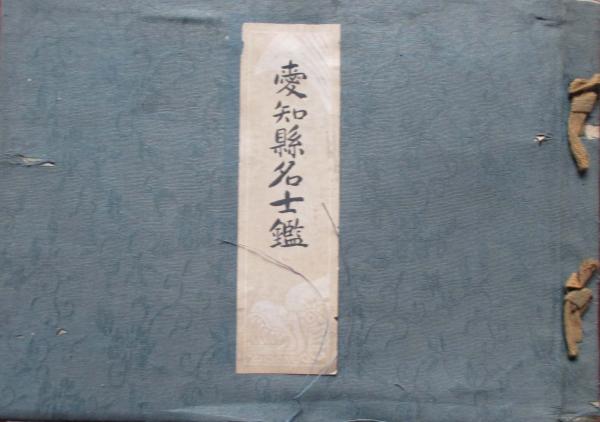 愛知縣名士鑑